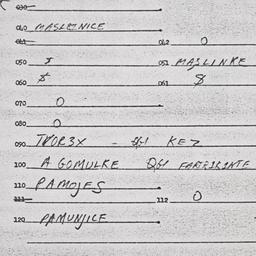 030
040 MASLENICE
041 042 O
050 J 051 MASLINKE
060 $ 061 $
070 O
080 O
090 TVOR3X - KEZ
100 A GOMULKE
110 PAMOJES
111 112 O
120 PAMUNJICE